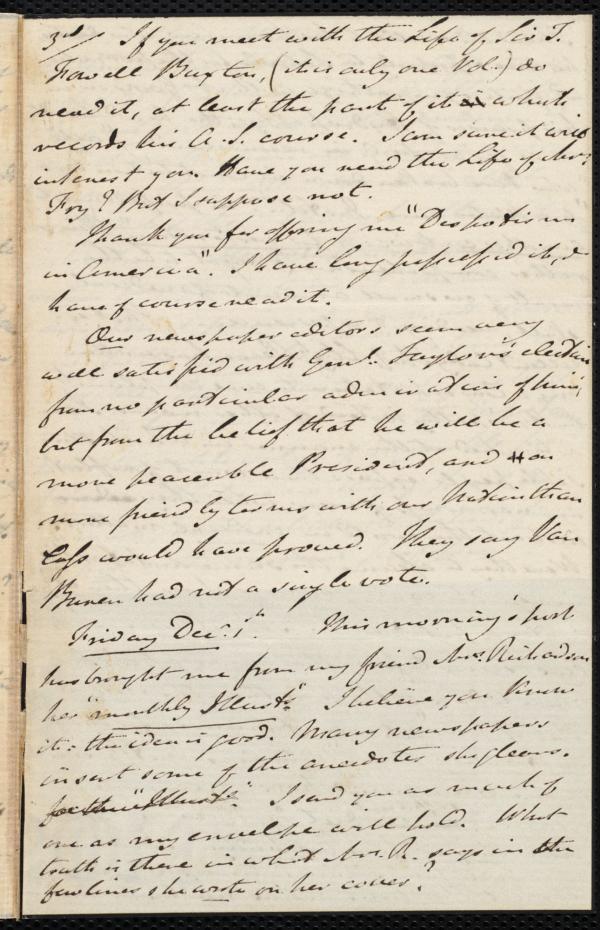 3rd/ If you meet with the Life of Sir T.
Fowell Buxton, (it is only one Vol.) do
read it, at least the part of it which
records his A. S. course. I am sure it will
interest you. Have you read the Life of Mrs.
Fry? But I suppose not.
Thank you for offering me "Despotism
in America". I have long possessed it, &
have of course read it.
Our newspaper editors seem very
well satisfied with Genl. Taylor's election
from no particular admiration of him,
but from the belief that he will be a
more peaceable President, and on
more friendly terms with our Nation than
Cass would have proved. They say Van
Buren had not a single vote.
Friday Decr. 1st. This morning's post
has brought me from my friend Mrs. Richardson
her "monthly Illustns." I believe you know
it - the idea is good. Many newspapers
insert some of the anecdotes she gleans.
for the "Illustns". I send you as much of
one as my envelope will hold. What
truth is there in what Mrs. R. says in the
few lines she wrote on her cover?